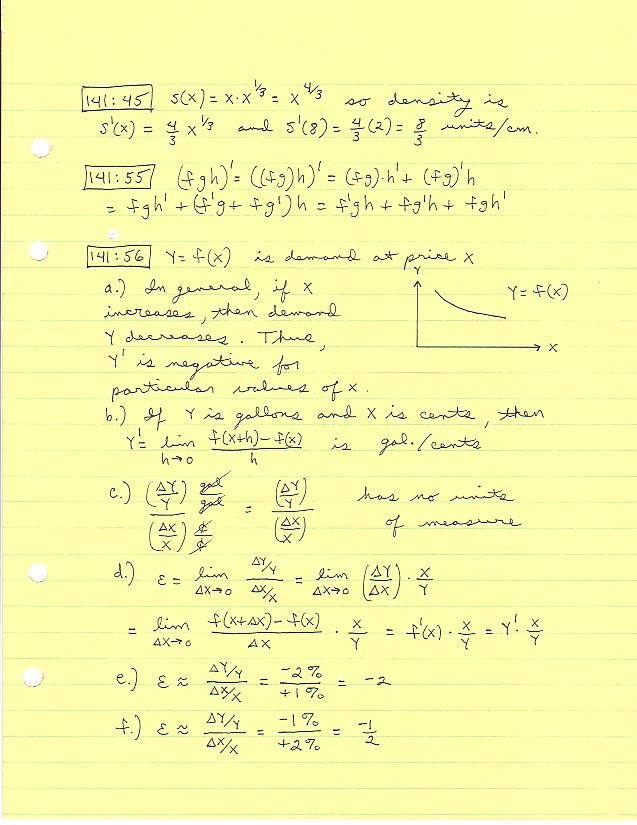 141:45 S(x) = x·x^{1/3} = x^{4/3} so density is
S'(x) = 4/3 x^{1/3} and S'(8) = 4/3 (2) = 8/3 units/cm.
141:55 (fgh)' = ((fg)h)' = (fg)·h' + (fg)'h
= fgh' + (f'g + fg')h = f'gh + fg'h + fgh'
141:56 Y = f(x) is demand at price x
a.) In general, if x
increases, then demand
Y decreases. Thus,
Y' is negative for
particular values of x.
Y
Y = f(x)
x
b.) If Y is gallons and x is cents, then
Y' = lim_{h→0} (f(x+h) - f(x))/h is gal./cents
c.) ((ΔY/Y) gal/gal)/((Δx/x) ¢/¢) = (ΔY/Y)/(Δx/x) has no units
of measure
d.) ε = lim_{Δx→0} (ΔY/Y)/(Δx/x) = lim_{Δx→0} (ΔY/Δx) · x/Y
= lim_{Δx→0} (f(x+Δx) - f(x))/Δx · x/Y = f'(x) · x/Y = Y' · x/Y
e.) ε ≈ (ΔY/Y)/(Δx/x) = -2%/+1% = -2
f.) ε ≈ (ΔY/Y)/(Δx/x) = -1%/+2% = -1/2